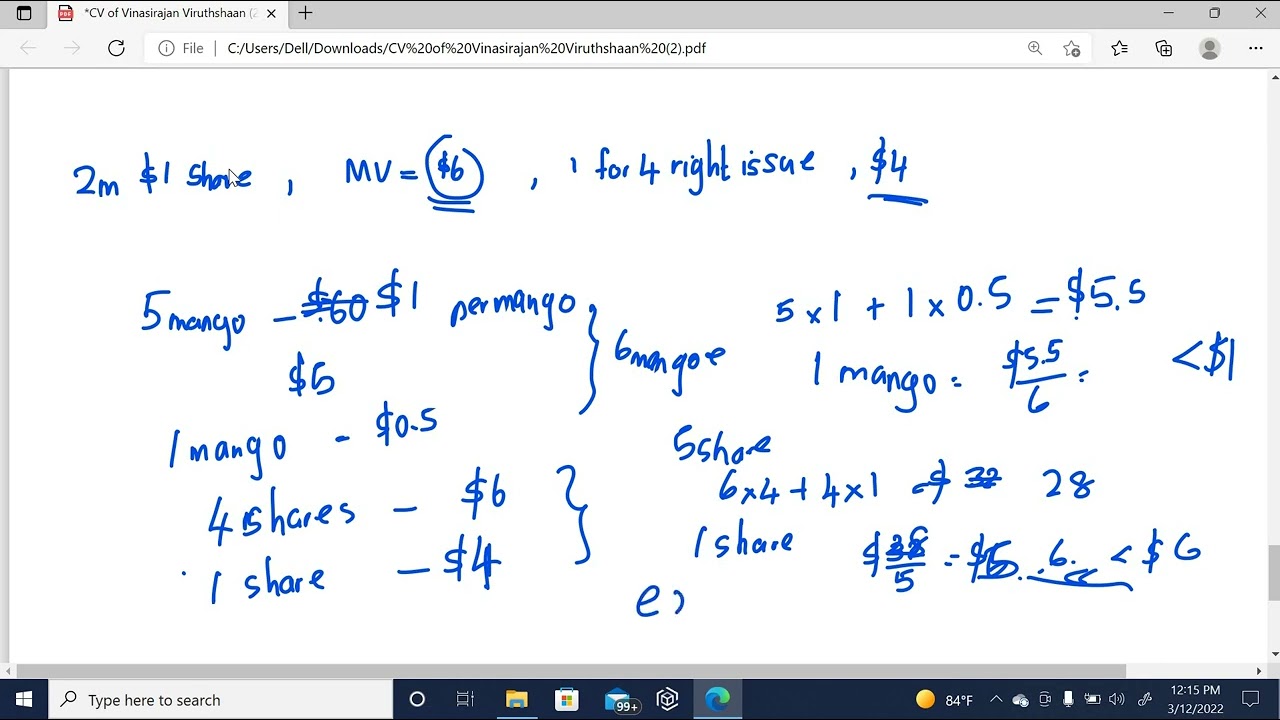 *CV of Vinasirajan Viruthshaan (2
File C:/Users/Dell/Downloads/CV%20of%20Vinasirajan%20Viruthshaan%20(2).pdf
2m $1 share , MV = $6 , 1 for 4 right issue , $4
5 mango - $60 $1 per mango
5 x 1 + 1 x 0.5 = $5.5
6 mangoe
$5
1 mango = $5.5/6 = < $1
1 mango - $0.5
5 share
4 shares - $6
6x4 + 4x1 = $ 28
1 share - $4
1 share $28/5 = $5.6. < $6
e)
Type here to search
99+
84°F
12:15 PM
3/12/2022